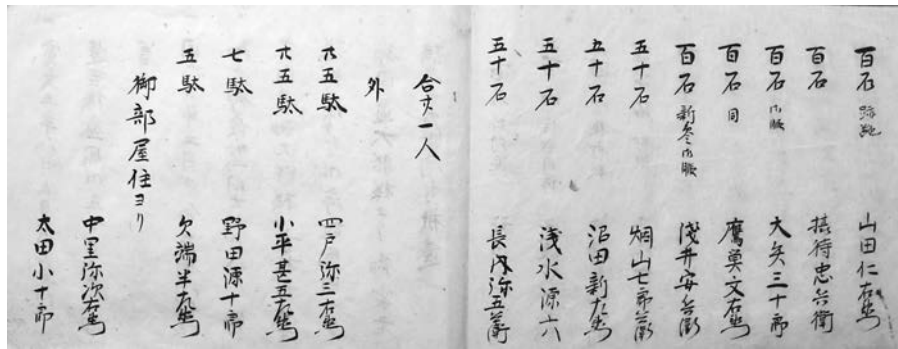 百石 山田仁右衛門
百石 接待忠兵衛
百石 大矢三十郎
百石 同 鷹觜文右衛門
百石 新参 浅井安兵衛
五十石 畑山七郎兵衛
五十石 沼田新左衛門
五十石 浅水源六
五十石 長内弥五兵衛
合廿一人
外
廿五駄 四戸弥三右衛門
廿五駄 小平甚五右衛門
七駄 野田源十郎
五駄 欠端半右衛門
御部屋住ヨリ
中里弥次右衛門
太田小十郎